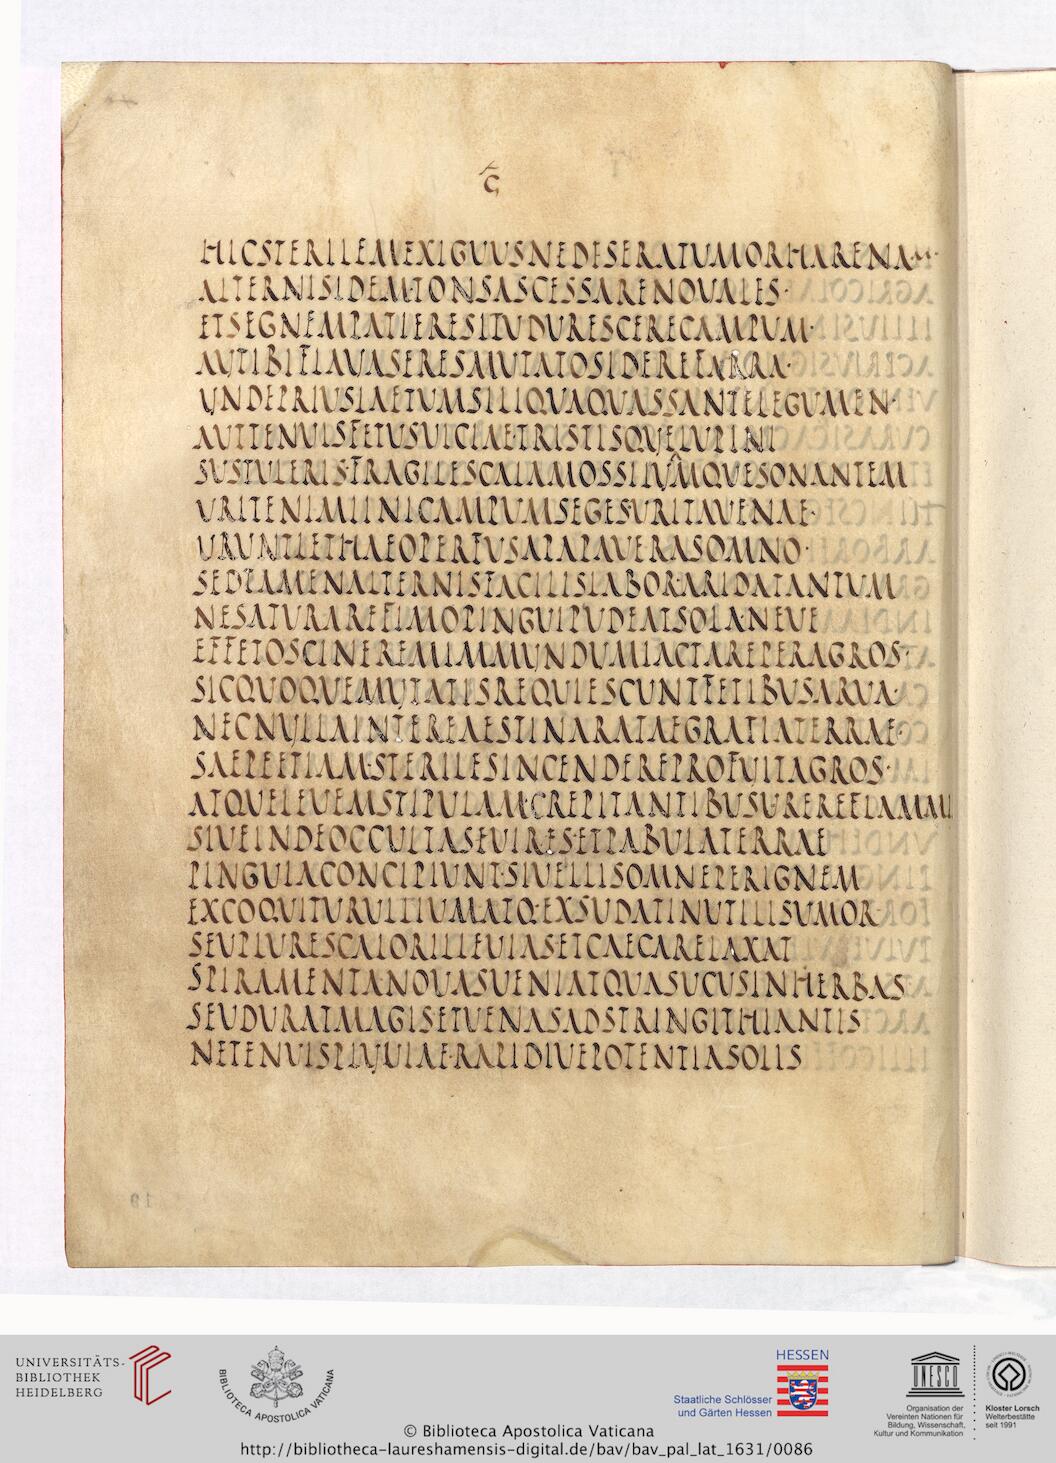 G
HICSTERILEMEXIGUUSNEDESERATUMORHARENAM·
ALTERNISIDEM·TONSASCESSARENOUALES·
ETSEGNEMPATIERESITUDURESCERECAMPUM·
AUTIBIFLAUASERESMUTATOSIDEREFARRA·
UNDEPRIUSLAETUMSILIQUAQUASSANTELEGUMEN·
AUTTENUISFETUSUICIAE·TRISTISQUELUPINI
SUSTULERIS·FRAGILESCALAMOSSILUAMQUESONANTEM
URITENIMLINICAMPUMSEGESURITAUENAE·
URUNTLETHAEOPERFUSAPAPAUERASOMNO·
SEDTAMENALTERNISFACILISLABOR·ARIDATANTUM
NESATURAREFIMOPINGUIPUDEATSOLA·NEUE
EFFETOSCINEREMIMMUNDUMIACTAREPERAGROS·
SICQUOQUEMUTATISREQUIESCUNTFETIBUSARUA·
NECNULLAINTEREAESTINARATAEGRATIATERRAE·
SAEPEETIAM·STERILESINCENDEREPROFUITAGROS·
ATQUELEUEMSTIPULAM·CREPITANTIBUSUREREFLAMMI
SIUEINDEOCCULTASEUIRES·ETPABULATERRAE
PINGUIACONCIPIUNT·SIUEILLISOMNEPERIGNEM
EXCOQUITURUITIUMATQ·EXSUDATINUTILISUMOR·
SEUPLURESCALORILLEUIAS·ETCAECARELAXAT
SPIRAMENTANOUASUENIATQUASUCUSINHERBAS
SEUDURATMAGISETUENASADSTRINGITHIANTIS
NETENUISPLUUIAE·RAPIDIUEPOTENTIASOLIS
19
UNIVERSITÄTS-
BIBLIOTHEK
HEIDELBERG
BIBLIOTECA APOSTOLICA VATICANA
HESSEN
Staatliche Schlösser
und Gärten Hessen
UNESCO
Organisation der
Vereinten Nationen für
Bildung, Wissenschaft,
Kultur und Kommunikation
Kloster Lorsch
Welterbestätte
seit 1991
© Biblioteca Apostolica Vaticana
http://bibliotheca-laureshamensis-digital.de/bav/bav_pal_lat_1631/0086